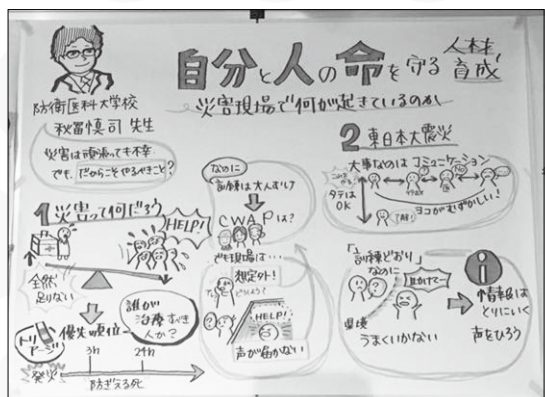 自分と人の命を守る人材育成
災害現場で何が起きているのか
防衛医科大学校
秋冨慎司 先生
災害は頑張っても不幸
でも、だからこそやるべきこと?
1 災害って何だろう
HELP!
全然
足りない
トリアージ
優先順位
誰が
治療すべき
人か?
発災
3h
24h
防ぎえる死
なのに
訓練は大人だけ
CWAPは?
でも現場は…
想定外!
HELP!
声が届かない
2 東日本大震災
大事なのは コミュニケーション
タテは
OK
ヨコがむずかしい!
「訓練どおり」
なのに
環境
うまくいかない
i
情報は
とりにいく
声をひろう